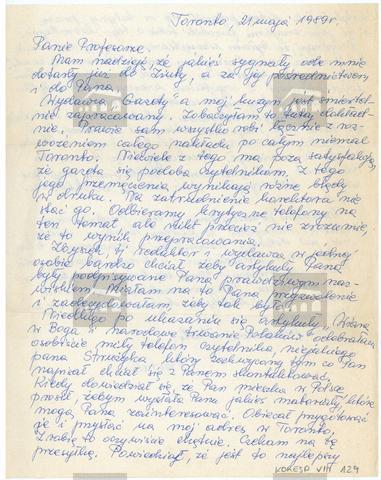 Toronto, 21 maja 1989 r.
Panie Profesorze.
Mam nadzieję, że jakieś sygnały ode mnie
dotarły już do Ziuty, a za Jej pośrednictwem
i do Pana.
Wydawca „Gazety" a mój kuzyn jest śmiertel-
nie zapracowany. Zobaczyłam to tutaj dokład-
nie. Prawie sam wszystko robi łącznie z roz-
wożeniem całego nakładu po całym niemal
Toronto. Niewiele z tego ma poza satysfakcją,
że gazeta się podoba czytelnikom. Z tego
jego przemęczenia wynikają różne błędy
w druku. Na zatrudnienie korektora nie
stać go. Odbieramy krytyczne telefony na
ten temat, ale nikt przecież nie zrozumie,
że to wynik przepracowania.
Zbyszek, tj. redaktor i wydawca w jednej
osobie bardzo chciał, żeby artykuły Pana
były podpisywane Pana prawdziwym naz-
wiskiem. Miałam na to Pana przyzwolenie
i zadecydowałam żeby tak było.
Niedługo po ukazaniu się artykułu „Wiara
w Boga i narodowe trwanie Polaków" odebrałam
osobiście miły telefon czytelnika, niejakiego
pana, który zachwycony tym co Pan
napisał chciał się z Panem skontaktować.
Kiedy dowiedział się, że Pan mieszka w Polsce
prosił, żebym wysłała Panu jakieś materiały, które
mogą Pana zainteresować. Obiecał przygotować
je i przysłać na mój adres w Toronto.
Zrobię to oczywiście chętnie. Czekam na tę
przesyłkę. Powiedział, że jest to najlepszy
KORESP VIII 129